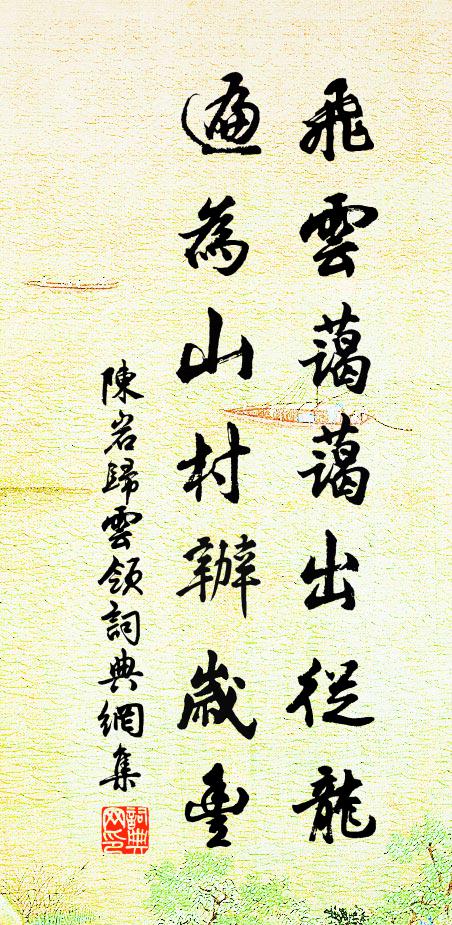 飛雲藹藹出從龍
遍為山村辦歲豐
陳岩歸雲領詞典網集
詞典網印